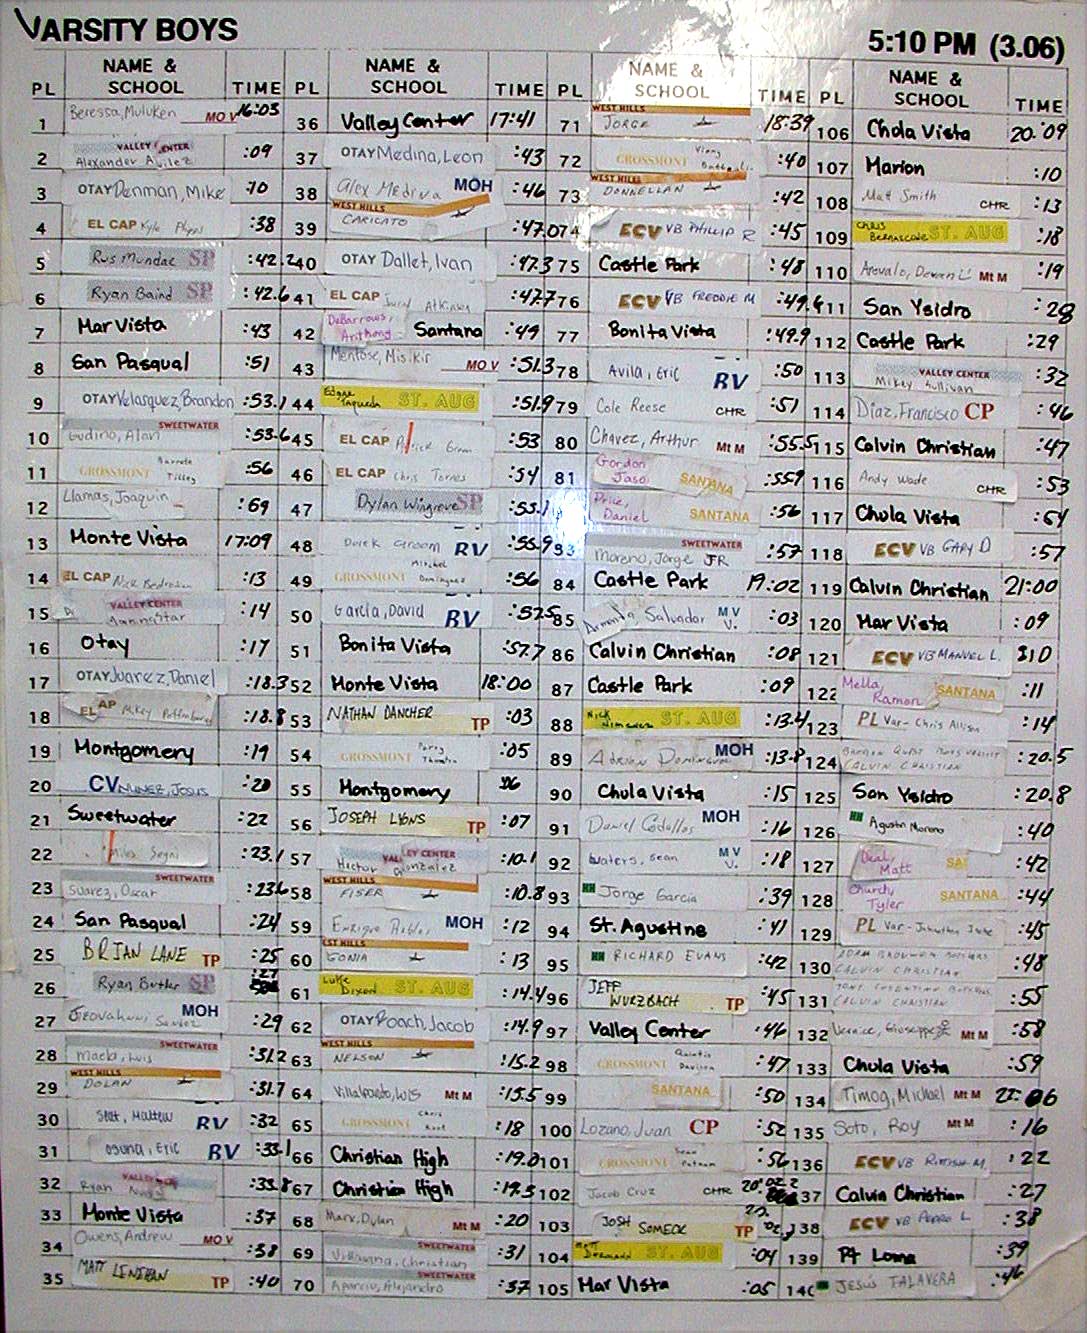 VARSITY BOYS
5:10 PM (3.06)
PL NAME & SCHOOL TIME PL NAME & SCHOOL TIME PL NAME & SCHOOL TIME PL NAME & SCHOOL TIME
1 Beressa, Muluken MO V 16:03
2 VALLEY CENTER Alexander Avilez :09
3 OTAY Denman, Mike :10
4 EL CAP Kyle :38
5 Rus Mundae SP :42.2
6 Ryan Baird SP :42.6
7 Mar Vista :43
8 San Pasqual :51
9 OTAY Velasquez, Brandon :53.1
10 SWEETWATER Gudino, Alan :53.6
11 GROSSMONT :56
12 Llamas, Joaquin :69
13 Monte Vista 17:09
14 EL CAP Nick :13
15 VALLEY CENTER :14
16 Otay :17
17 OTAY Juarez, Daniel :18.3
18 EL AP Mikey :18.8
19 Montgomery :19
20 CV NUNEZ, JOSUS :20
21 Sweetwater :22
22 Miles Segni :23.1
23 SWEETWATER Suarez, Oscar :23.6
24 San Pasqual :24
25 BRIAN LANE TP :25
26 Ryan Butler SP :27
27 Jeovahnni MOH :29
28 SWEETWATER Luis :31.2
29 WEST HILLS DOLAN :31.7
30 Matthew RV :32
31 Osuna, Eric RV :33.1
32 Ryan :33.8
33 Monte Vista :37
34 Owens, Andrew MO V :38
35 MATT LENIHAN TP :40
36 Valley Center 17:41
37 OTAY Medina, Leon :43
38 Alex Medina MOH :46
39 WEST HILLS CARICATO :47.0
40 OTAY Dallet, Ivan :47.3
41 EL CAP Atkinson :47.7
42 DeBarrows, Anthony Santana :49
43 Mentose, Miskir MO V :51.3
44 ST. AUG :51.9
45 EL CAP :53
46 EL CAP Chris Torres :54
47 Dylan Wingrove SP :55.1
48 Derek Groom RV :55.9
49 GROSSMONT Mitchel Dominguez :56
50 Garcia, David RV :57.5
51 Bonita Vista :57.7
52 Monte Vista 18:00
53 NATHAN DANCHER TP :03
54 GROSSMONT :05
55 Montgomery :06
56 JOSEPH LYONS TP :07
57 VALLEY CENTER Hector Gonzalez :10.1
58 WEST HILLS FISER :10.8
59 Enrique MOH :12
60 EST HILLS GONIA :13
61 Luke Dixon ST. AUG :14.4
62 OTAY Roach, Jacob :14.9
63 WEST HILLS NELSON :15.2
64 Villalpando, Luis Mt M :15.5
65 GROSSMONT Chris :18
66 Christian High :19.0
67 Christian High :19.5
68 Marv, Dylan Mt M :20
69 SWEETWATER Villasana, Christian :31
70 SWEETWATER Aparicio, Alejandro :37
71 WEST HILLS JORGE 18:39
72 GROSSMONT :40
73 WEST HILLS DONNELLAN :42
74 ECV VB PHILLIP R :45
75 Castle Park :48
76 ECV VB FREDDIE M :49.6
77 Bonita Vista :49.9
78 Avila, Eric RV :50
79 Cole Reese CHR :51
80 Chavez, Arthur Mt M :55.5
81 Gordon Jaso SANTANA :55.9
Price, Daniel SANTANA :56
SWEETWATER Moreno, Jorge JR :57
84 Castle Park 19:02
85 Salvador M V V. :03
86 Calvin Christian :08
87 Castle Park :09
88 Nick Jimenez ST. AUG :13.4
89 Adrian Dominguez MOH :13.8
90 Chula Vista :15
91 Daniel Ceballos MOH :16
92 Waters, Sean M V V. :18
93 HH Jorge Garcia :39
94 St. Agustine :41
95 HH RICHARD EVANS :42
96 JEFF WURZBACH TP :45
97 Valley Center :46
98 GROSSMONT Quintin Davison :47
99 SANTANA :50
100 Lozano, Juan CP :52
101 GROSSMONT Sean Putnam :56
102 Jacob Cruz CHR 20:02.2
103 JOSH SOMECK TP
104 Matt ST. AUG :04
105 Mar Vista :05
106 Chola Vista 20:09
107 Marion :10
108 Mat Smith CHR :13
109 Chris Bernascole ST. AUG :18
110 Arevalo, Deven L Mt M :19
111 San Ysidro :28
112 Castle Park :29
113 VALLEY CENTER Mikey Sullivan :32
114 Diaz, Francisco CP :46
115 Calvin Christian :47
116 Andy Wade CHR :53
117 Chula Vista :54
118 ECV VB GARY D :57
119 Calvin Christian 21:00
120 Mar Vista :09
121 ECV VB MANUEL L. :10
122 Mella, Ramon SANTANA :11
123 PL Var- Chris Allison :14
124 CALVIN CHRISTIAN :20.5
125 San Ysidro :20.8
126 HH Agustin Moreno :40
127 Deal, Matt SA :42
128 Church, Tyler SANTANA :44
129 PL Var- Johnathan :45
130 ADAM BROUWER CALVIN CHRISTIAN :48
131 CALVIN CHRISTIAN :55
132 Vernice, Giuseppe Mt M :58
133 Chula Vista :59
134 Timog, Michael Mt M 22:06
135 Soto, Roy Mt M :16
136 ECV VB M. :22
137 Calvin Christian :27
138 ECV VB PEDRO L :38
139 Pt Loma :39
140 JESÚS TALAVERA :46